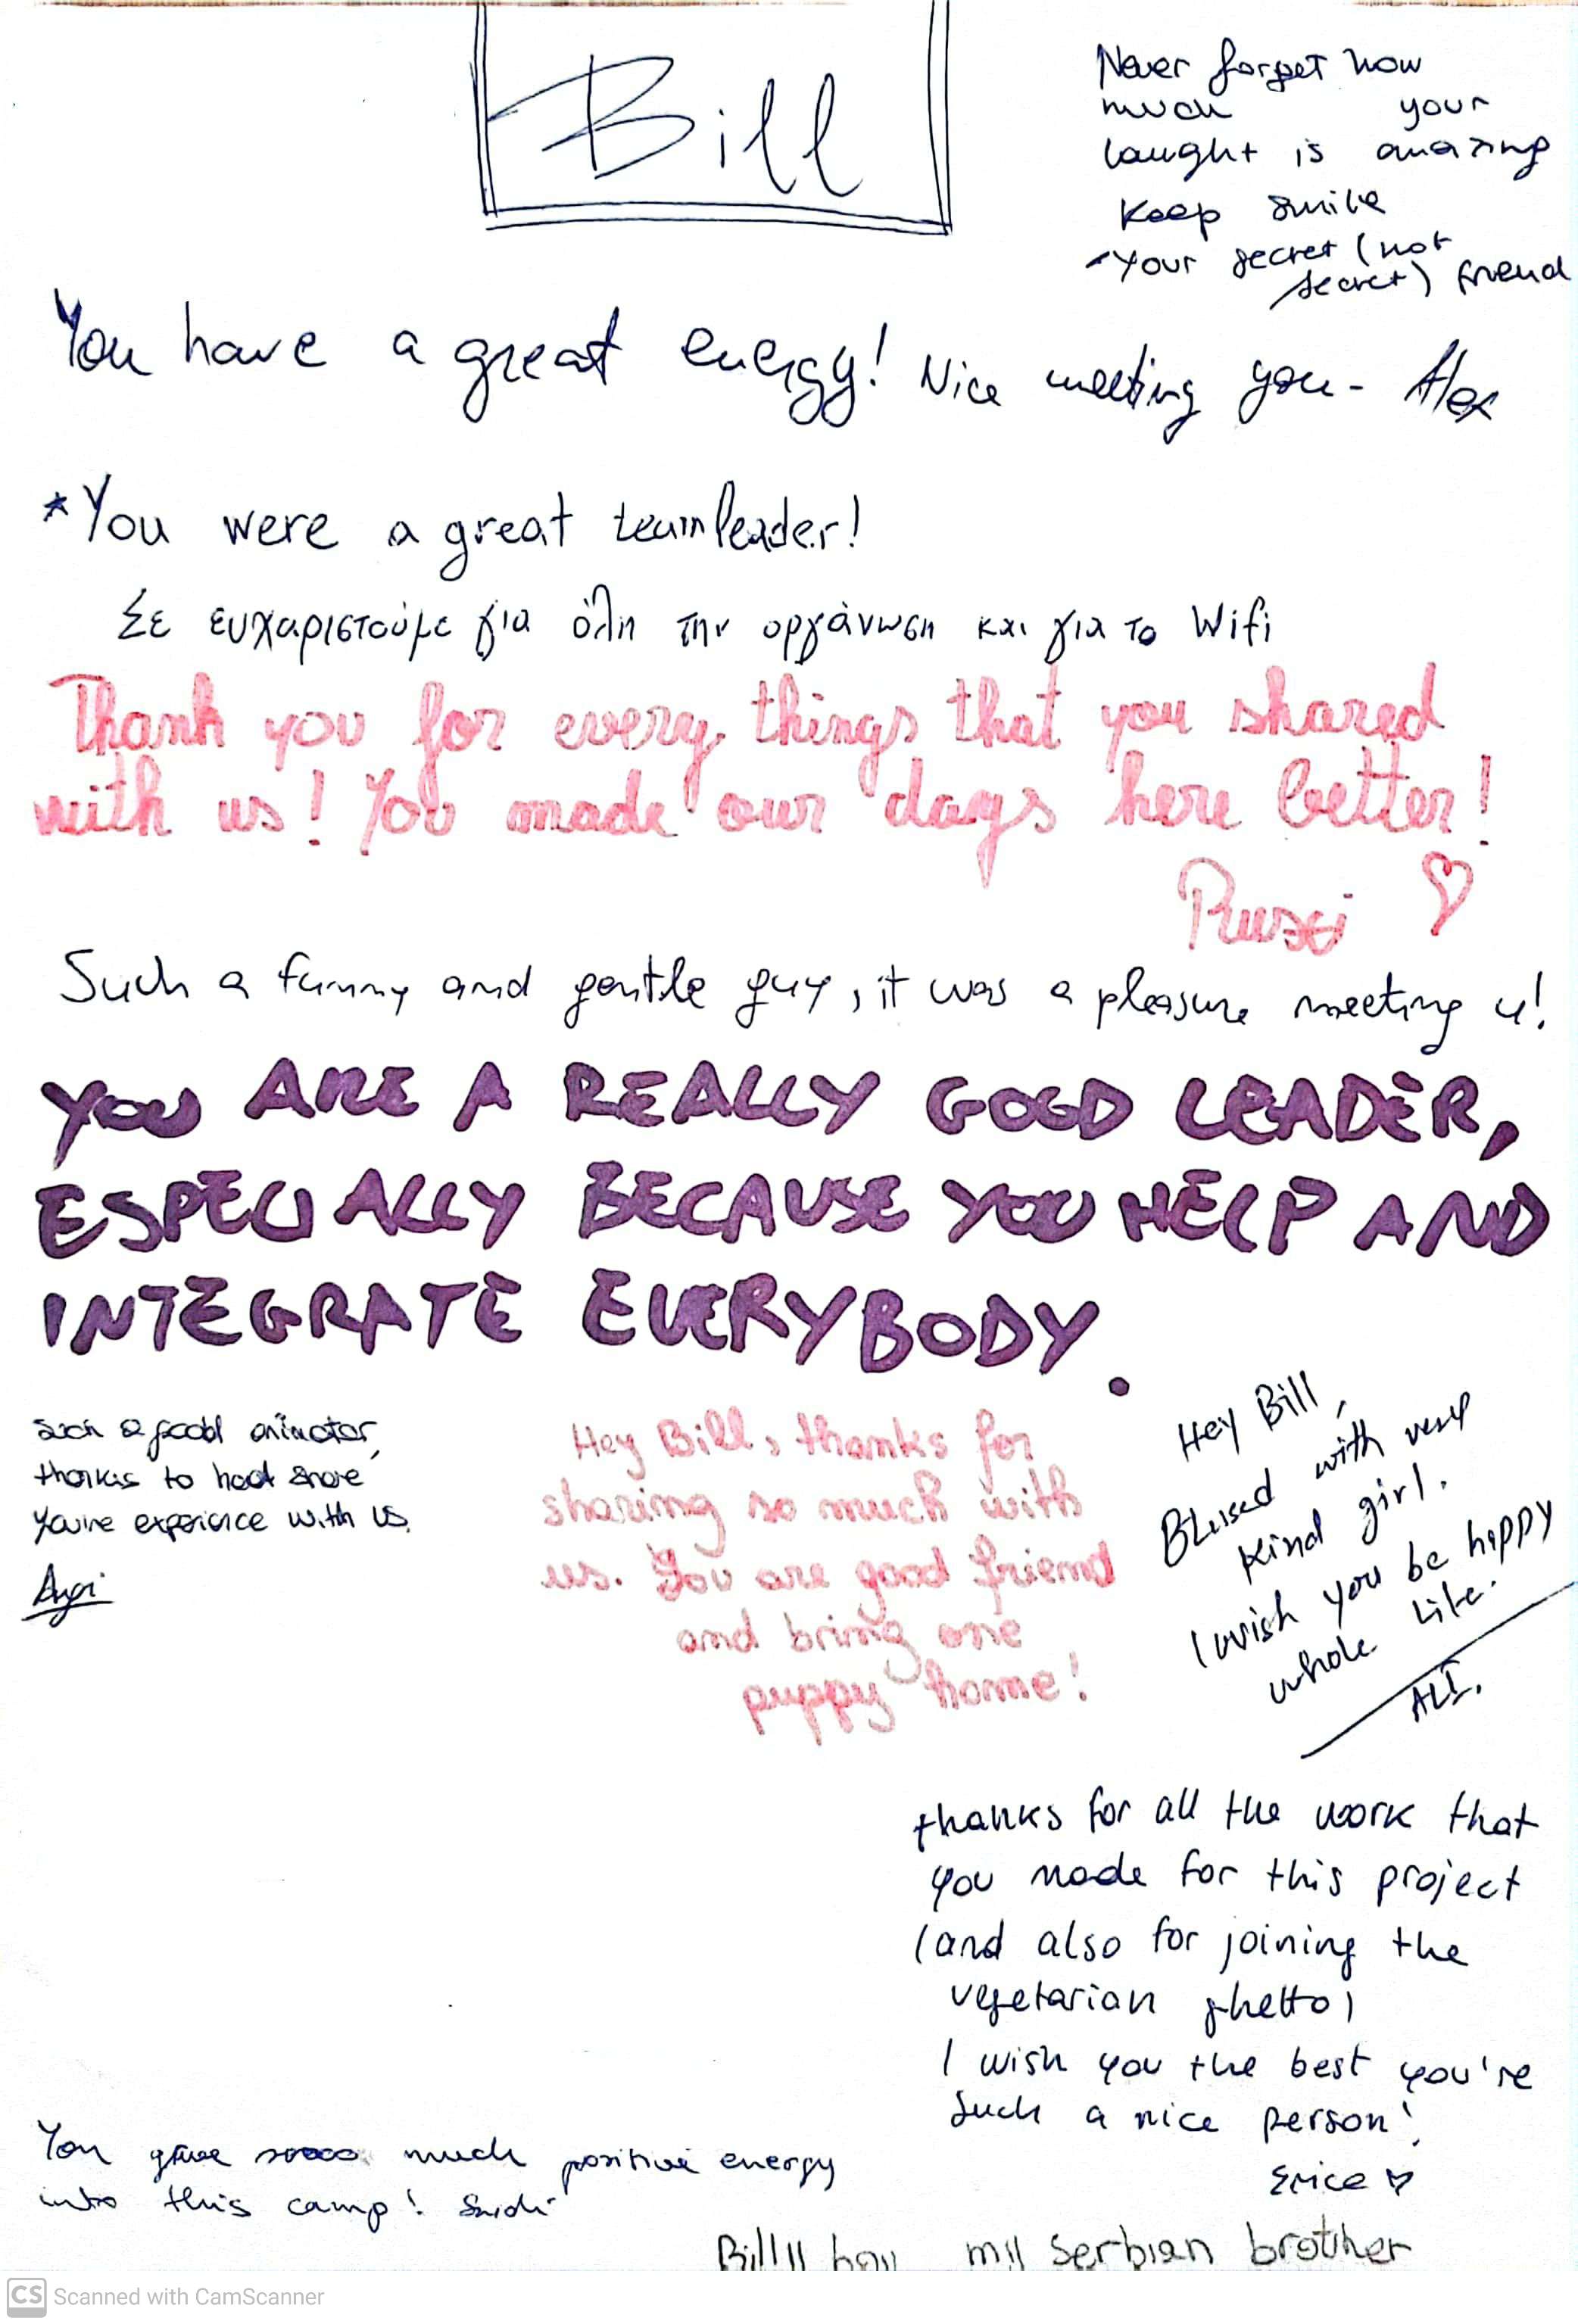 Bill
Never forget how
much your
laught is amazing
Keep smile
-Your secret (not
secret) friend
You have a great energy! Nice meeting you - Alex
*You were a great teamleader!
Σε ευχαριστούμε για όλη την οργάνωση και για το Wifi
Thank you for every things that you shared
with us! You made our days here better!
♡
Such a funny and gentle guy, it was a pleasure meeting u!
YOU ARE A REALLY GOOD LEADER,
ESPECIALLY BECAUSE YOU HELP AND
INTEGRATE EVERYBODY.
such a goodd animator,
thankss to had share
you're experience with us.
Hey Bill, thanks for
sharing so much with
us. You are good friend
and bring one
puppy home!
Hey Bill,
Blessed with very
kind girl.
I wish you be happy
whole life.
ALI.
thanks for all the work that
you made for this project
(and also for joining the
vegetarian ghetto)
I wish you the best you're
such a nice person!
Erice ♡
You gave soooo much positive energy
into this camp!
Billy boy my serbian brother
CS Scanned with CamScanner